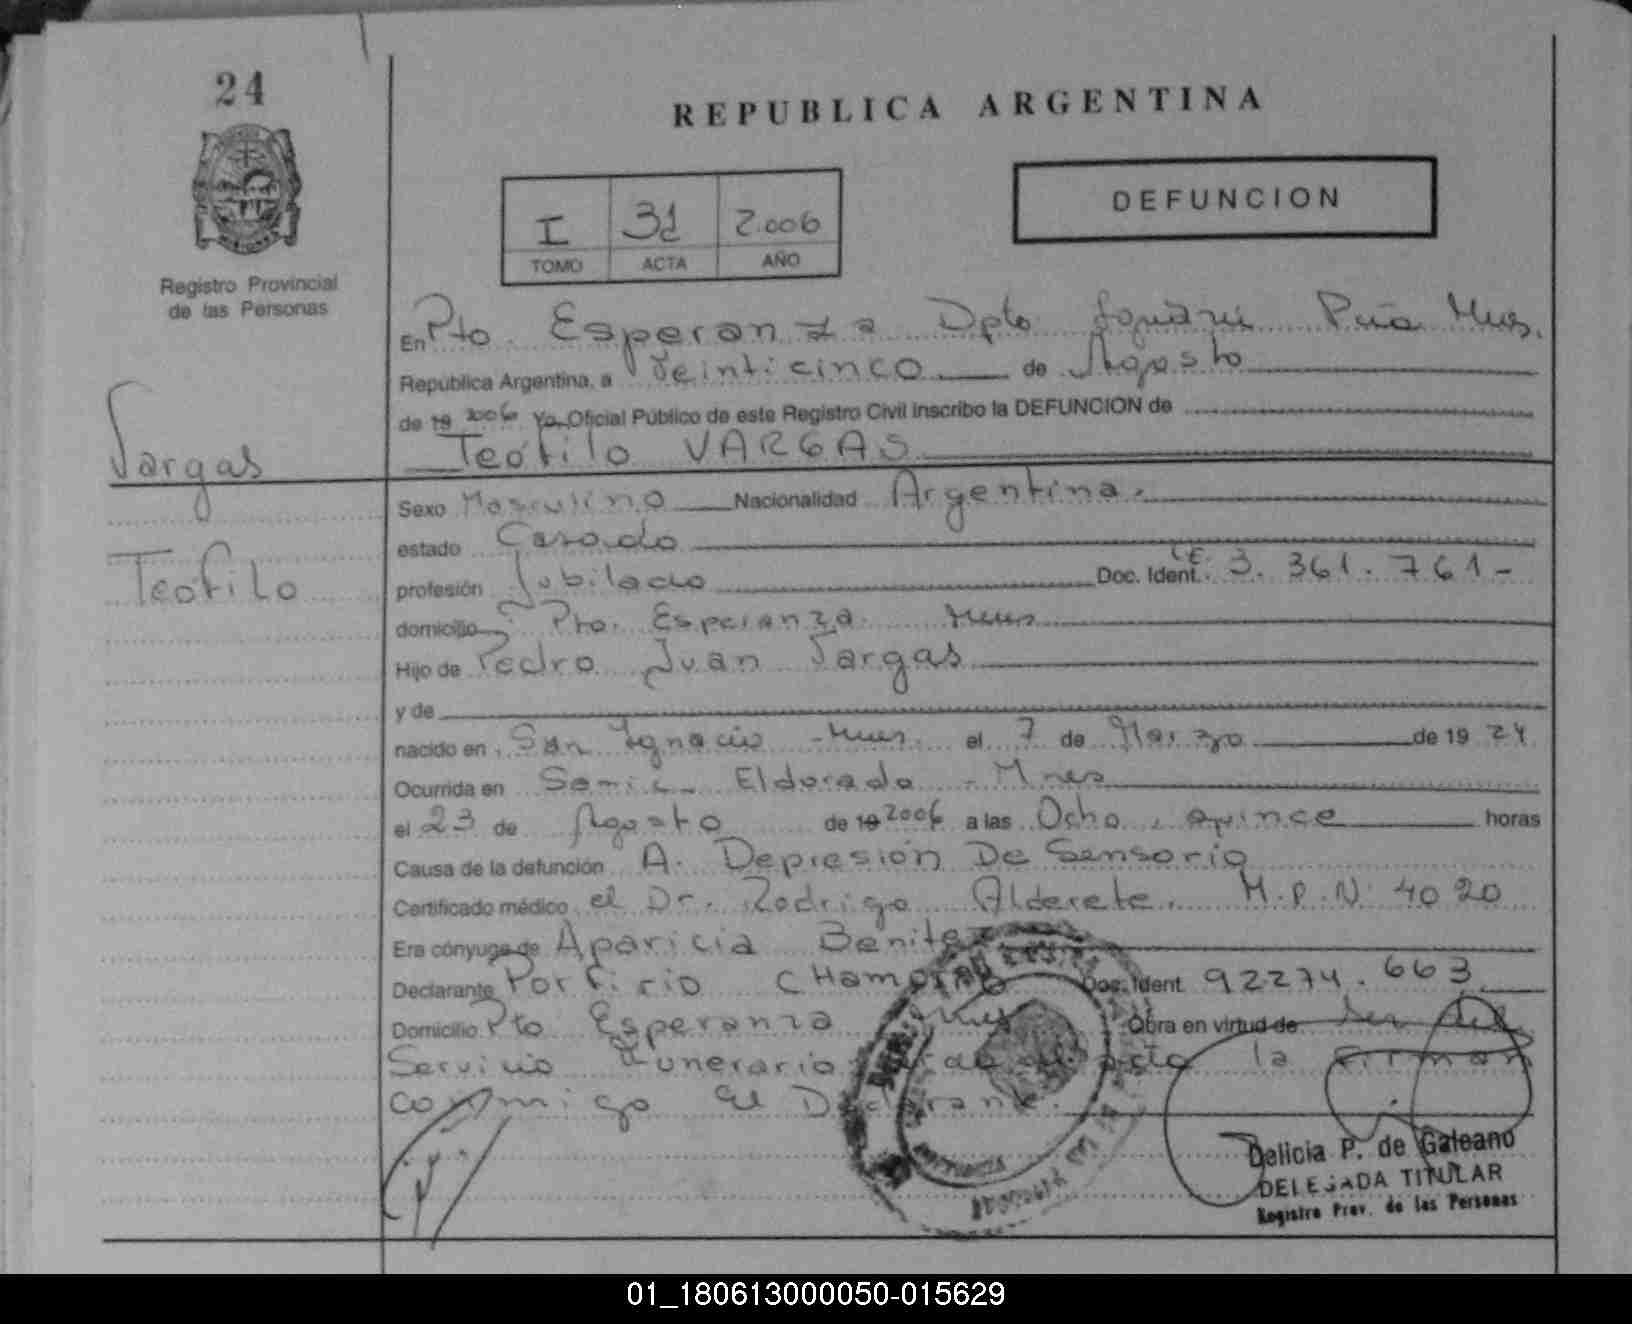 24
REPUBLICA ARGENTINA
DEFUNCION
I 31 2.006
TOMO ACTA AÑO
Registro Provincial
de las Personas
En Pto. Esperanza Dpto Iguazú Pcia Mnes.
República Argentina, a Veinticinco de Agosto
de 19 2006 Yo, Oficial Público de este Registro Civil inscribo la DEFUNCION de
Teófilo VARGAS
Vargas
Teófilo
Sexo Masculino Nacionalidad Argentina.
estado Casado
profesión Jubilado Doc. Ident. L.E. 3.361.761-
domicilio Pto. Esperanza Mnes
Hijo de Pedro Juan Vargas
y de
nacido en San Ignacio - Mnes. el 7 de Marzo de 19 24
Ocurrida en Samic - Eldorado - Mnes
el 23 de Agosto de 19 2006 a las Ocho, quince horas
Causa de la defunción A. Depresión De Sensorio
Certificado médico el Dr. Rodrigo Alderete. M.P.N: 4020
Era cónyuge de Aparicia Benitez
Declarante Porfirio CHamorro Doc. Ident. 92274.663
Domicilio Pto Esperanza Mnes Obra en virtud de Ser del
Servicio Funerario acta la Firman
conmigo El Declarante.
Delicia P. de Galeano
DELEGADA TITULAR
Registro Prov. de las Personas
01_180613000050-015629